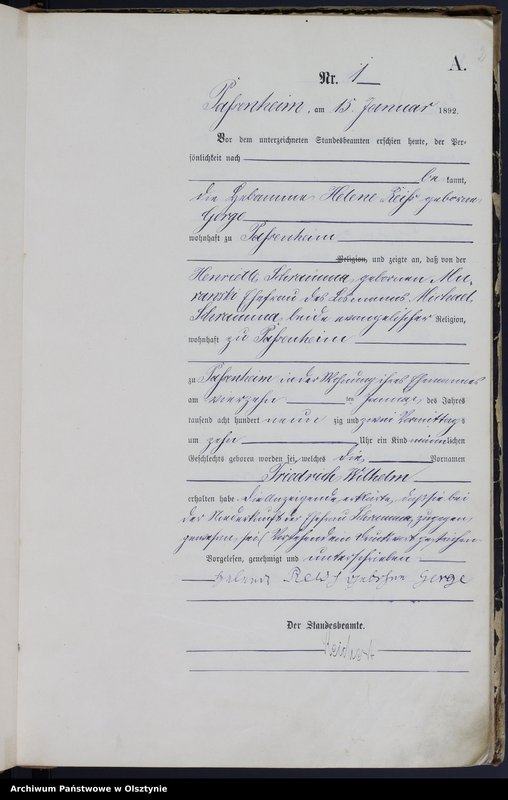 A.
Nr. 1
Passenheim, am 15. Januar 1892.
Vor dem unterzeichneten Standesbeamten erschien heute, der Per-
sönlichkeit nach
be kannt,
die Hebamme Helene Reiß geborene
Gorge
wohnhaft zu Passenheim
Religion, und zeigte an, daß von der
Henriette geborenen
Ehefrau des Losmanns Michael
beide evangelischer Religion,
wohnhaft zu Passenheim
zu Passenheim in der Wohnung ihres Ehemannes
am vierzehn ten Januar des Jahres
tausend acht hundert neun zig und zwei Vormittags
um zehn Uhr ein Kind männlichen
Geschlechts geboren worden sei, welches die Vornamen
Friedrich Wilhelm
erhalten habe. Die Anzeigende erklärte, daß sie bei
der Niederkunft der Ehefrau zugegen
gewesen sei. Vorstehend ein Druckwort gestrichen.
Vorgelesen, genehmigt und unterschrieben
geborne Gorge
Der Standesbeamte.
Archiwum Państwowe w Olsztynie